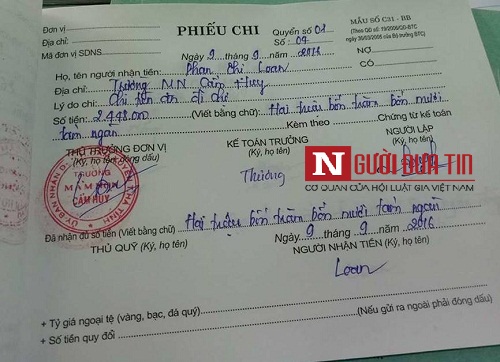 Đơn vị
Địa chỉ:
Mã đơn vị SDNS
PHIẾU CHI
Quyển số 01
Số : 04
Ngày 9 tháng 9 năm 2016
MẪU SỐ C31 - BB
(Theo QĐ số: 19/2006/QĐ-BTC
ngày 30/03/2006 của Bộ trưởng BTC)
NỢ
CÓ
Họ, tên người nhận tiền: Phan Thị Loan
Địa chỉ: Trường M.N Cẩm Huy
Lý do chi: Chi tiền ăn đi chợ
Số tiền: 2.448.000 (Viết bằng chữ): Hai triệu bốn trăm bốn mươi
tám ngàn
Kèm theo Chứng từ kế toán
THỦ TRƯỞNG ĐƠN VỊ
(Ký, họ tên, đóng dấu)
KẾ TOÁN TRƯỞNG
(Ký, họ tên)
NGƯỜI LẬP
(Ký, họ tên)
TRƯỜNG
MẦM NON
CẨM HUY
Thương
NGƯỜI ĐƯA TIN
CƠ QUAN CỦA HỘI LUẬT GIA VIỆT NAM
Đã nhận đủ số tiền (Viết bằng chữ) Hai triệu bốn trăm bốn mươi tám ngàn
Ngày 9 tháng 9 năm 2016
THỦ QUỸ (Ký, họ tên)
NGƯỜI NHẬN TIỀN (Ký, họ tên)
Loan
+ Tỷ giá ngoại tệ (vàng, bạc, đá quý)
+ Số tiền quy đổi
(Nếu gửi ra ngoài phải đóng dấu)